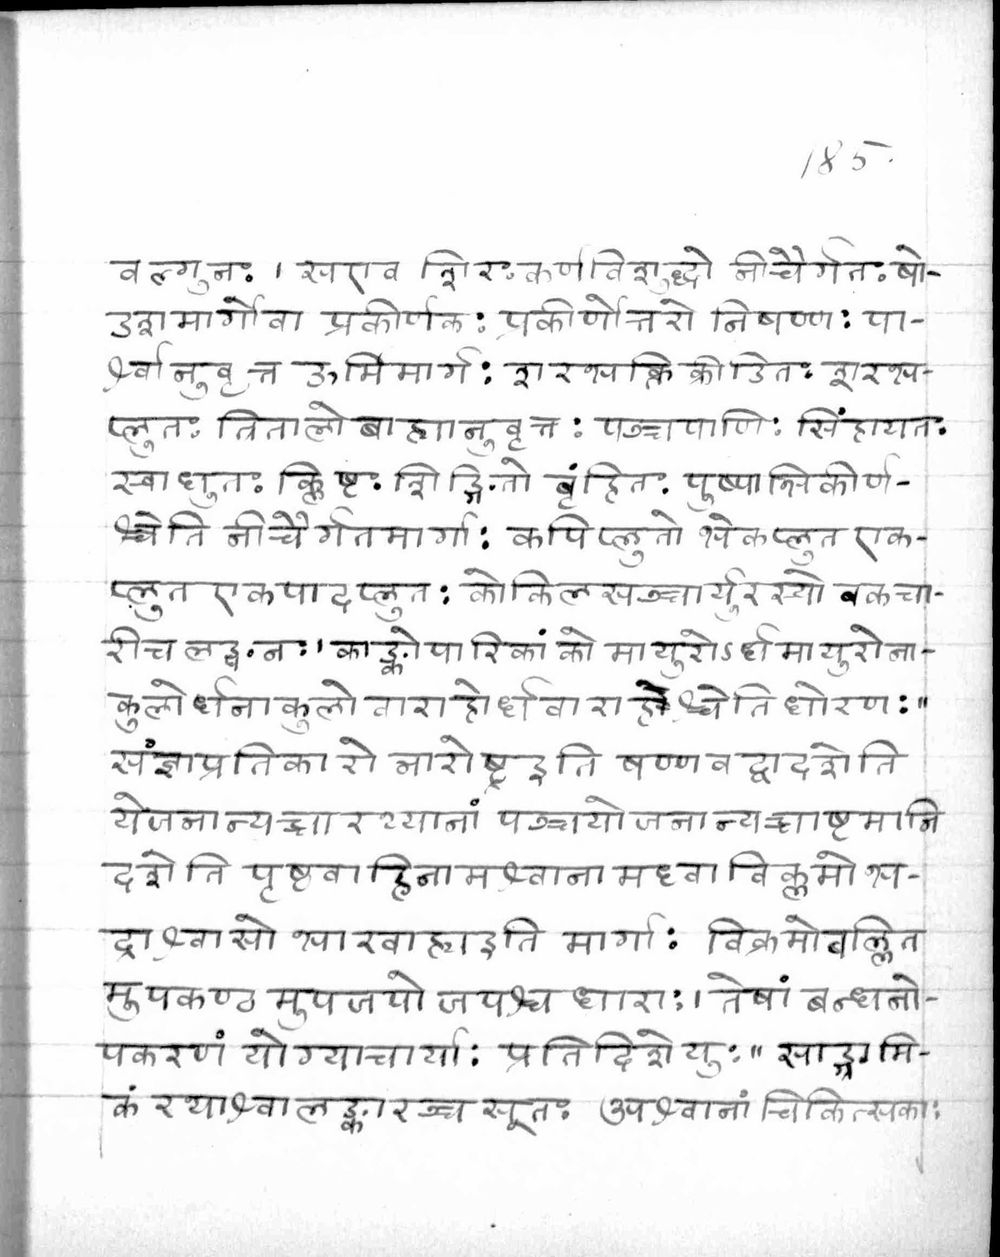 185.
वल्गुनः । सएव शिरःकर्णविशुद्धो नीचैर्गतः षो-
डशमार्गोवा प्रकीर्णकः प्रकीर्णोत्तरो निषण्णः पा-
र्श्वानुवृत्त ऊर्मिमार्गः शरभक्रीडितः शरभ-
प्लुतः त्रितालो बाह्यानुवृत्तः पञ्चपाणिः सिंहायतः
स्वाधुतः क्लिष्टः शिङ्गितो बृंहितः पुष्पाभिकीर्ण-
श्चेति नीचैर्गतमार्गाः कपिप्लुतो भेकप्लुत एक-
प्लुत एकपादप्लुतः कोकिलसञ्चार्युरस्यो बकचा-
रीच लङ्घनः। काङ्कोपारिकांको मायुरोऽर्धमायुरोना-
कुलोर्धनाकुलो वाराहोर्धवाराहश्चेति धोरणः॥
संज्ञाप्रतिकारो नारोष्ट्रइति षण्णवद्वादशेति
योजनान्यध्वारथ्यानां पञ्चयोजनान्यध्वाष्टमानि
दशेति पृष्ठवाहिनामश्वानामध्वा विक्लमो भ-
द्राश्वासो भारवाह्यइति मार्गाः विक्रमोवल्गित
मुपकण्ठमुपजयो जवश्च धाराः। तेषां बन्धनो-
पकरणं योग्याचार्याः प्रतिदिशेयुः॥ साङ्ग्रामि-
कं रथाश्वालङ्कारञ्च सूतः अश्वानां चिकित्सकाः